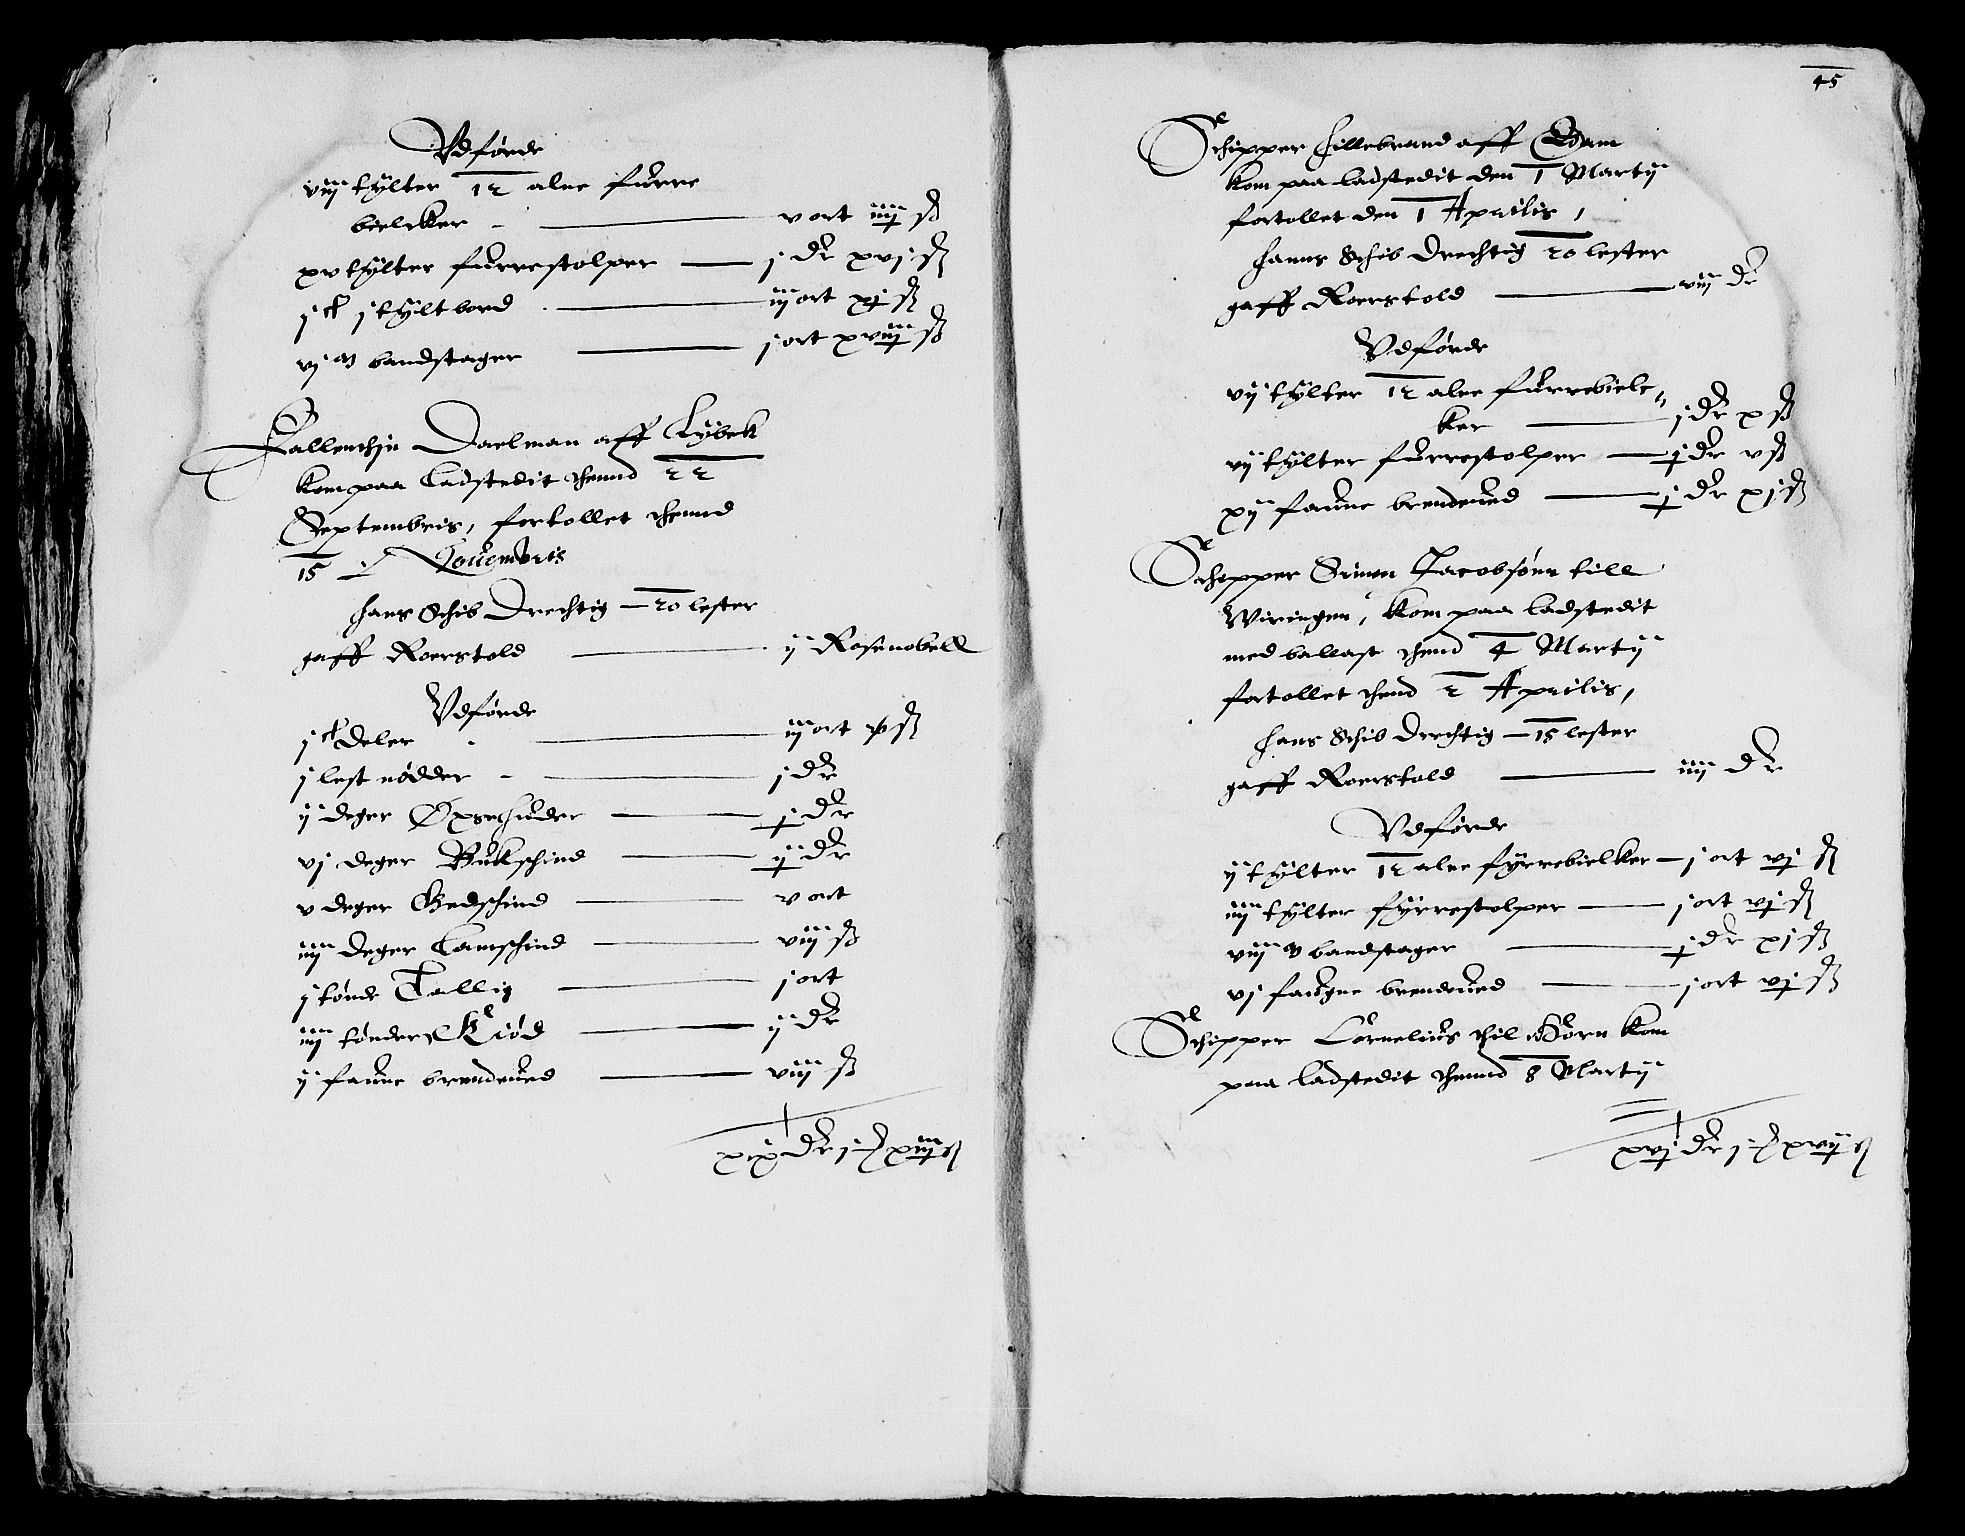 Vdførde
viij tylter 12 alne furre
bielcker — v ort iiij ß
xv tylter furrestolper — j dr xvj ß
jc j tylt bord — iij ort xj ß
vj m bandstager — j ort xviij ß
Fallenthin Daelman aff Lybek
kom paa ladstedit thennd 22
Septembris, fortollet thennd
15 Nouembris
hans Schib Drechtig — 20 lester
gaff Roerstold — ij Rosenobell
Vdførde
jc deler — iij ort x ß
j lest nødder — j dr
ij deger Øxsehuder — j dr
vj deger Bukschind — ij dr
v deger Gedschind — v ort
iiij deger Lamschind — viij ß
j tønde Tallig — j ort
iiij tønder Kiød — ij dr
ij faune brendeued — viij ß
xix dr j ort xiiij ß
45
Schipper Hillebrand aff Edam
kom paa ladstedit den 1 Martij
fortollet den 1 Aprilis,
hanns Schib Drechtig 20 lester
gaff Roerstold — viij dr
Vdførde
vij tylter 12 alne furrebielc
ker — j dr x ß
vij tylter furrestolper — j dr v ß
xij faune brendeued — j dr xj ß
Schepper Simen Jacobsønn till
Wiringen, kom paa ladstedit
med ballast thend 4 Martij
fortollet thend 2 Aprilis,
hans Schib Drechtig — 15 lester
gaff Roerstold — iiij dr
Vdførde
ij tylter 12 alne fyrrebielker — j ort vj ß
iiij tylter fyrrestolper — j ort vj ß
viij m bandstager — j dr xj ß
vj faugne brendeued — j ort vj ß
Schipper Cornelius thil Horn kom
paa ladstedit thennd 8 Martij
xvj dr j ort xvij ß